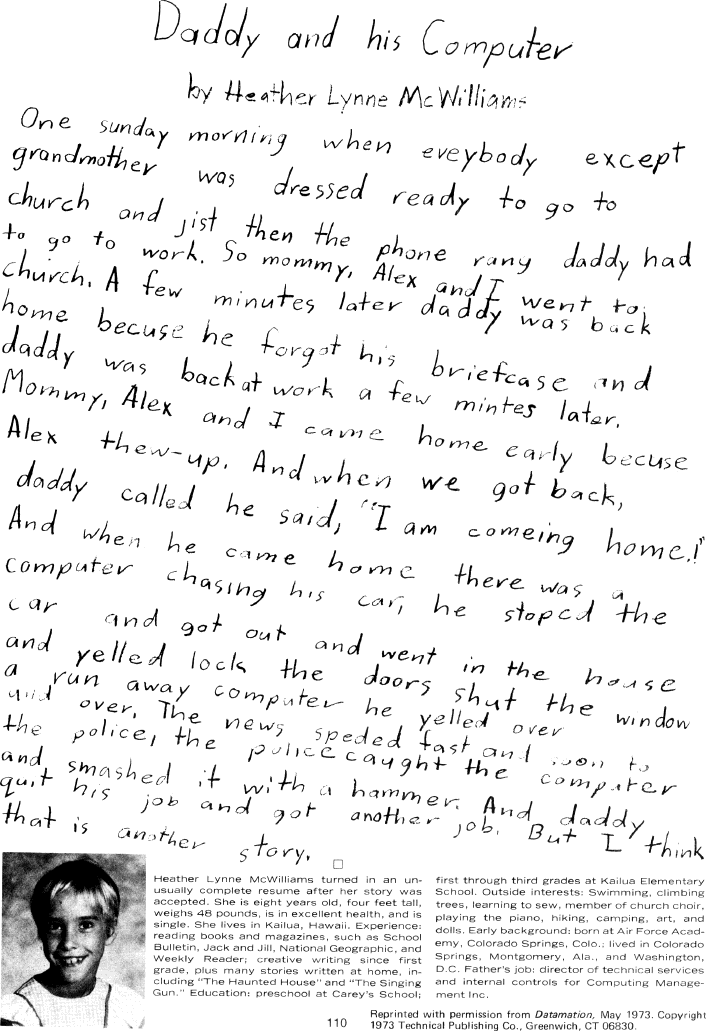 Daddy and his Computer
by Heather Lynne McWilliams
One sunday morning when eveybody except
grandmother was dressed ready to go to
church and jist then the phone rang daddy had
to go to work. So mommy, Alex and I went to
church. A few minutes later daddy was back
home becuse he forgot his briefcase and
daddy was back at work a few mintes later.
Mommy, Alex and I came home early becuse
Alex thew-up. And when we got back,
daddy called he said, "I am comeing home.!"
And when he came home there was a
computer chasing his car, he stoped the
car and got out and went in the house
and yelled lock the doors shut the window
a run away computer he yelled over
and over. The news speded fast and soon to
the police, the police caught the computer
and smashed it with a hammer. And daddy
quit his job and got another job. But I think
that is another story.
Heather Lynne McWilliams turned in an un-
usually complete resume after her story was
accepted. She is eight years old, four feet tall,
weighs 48 pounds, is in excellent health, and is
single. She lives in Kailua, Hawaii. Experience:
reading books and magazines, such as School
Bulletin, Jack and Jill, National Geographic, and
Weekly Reader; creative writing since first
grade, plus many stories written at home, in-
cluding "The Haunted House" and "The Singing
Gun." Education: preschool at Carey's School;
first through third grades at Kailua Elementary
School. Outside interests: Swimming, climbing
trees, learning to sew, member of church choir,
playing the piano, hiking, camping, art, and
dolls. Early background: born at Air Force Acad-
emy, Colorado Springs, Colo.; lived in Colorado
Springs, Montgomery, Ala., and Washington,
D.C. Father's job: director of technical services
and internal controls for Computing Manage-
ment Inc.
110
Reprinted with permission from Datamation, May 1973. Copyright
1973 Technical Publishing Co., Greenwich, CT 06830.